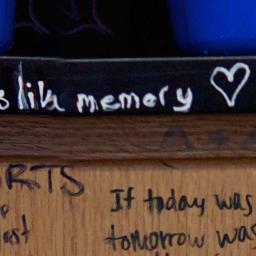 s like memory ♡
ARTS
If today was
tomorrow was